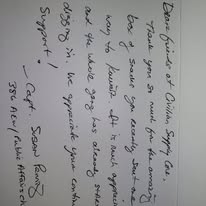 Dear friends at Civilian Supply Core,
Thank you so much for the amazing
box of snacks you recently sent our
way to Kuwait. It is much appreciated
and the whole gang has already started
digging in. We appreciate your continued
support!
- Capt. Susan
386 AEW/Public Affairs